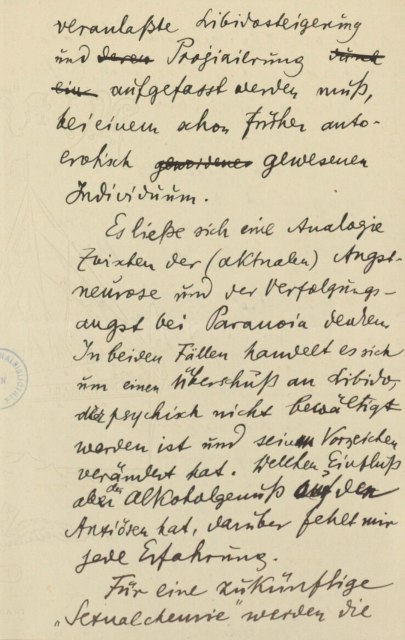 veranlaßte Libidosteigerung
und deren Projizierung durch
ein aufgefasst werden muß,
bei einem schon früher auto-
erotisch gewordenen gewesenen
Individuum.
Es ließe sich eine Analogie
zwischen der (aktualen) Angst-
neurose und der Verfolgungs-
angst bei Paranoia denken.
In beiden Fällen handelt es sich
um einen Überschuß an Libido,
der psychisch nicht bewältigt
worden ist und sein Vorzeichen
verändert hat. Welchen Einfluß
aber der Alkoholgenuß auf den
hat, darüber fehlt mir
jede Erfahrung.
Für eine zukünftige
„Sexualchemie" werden die